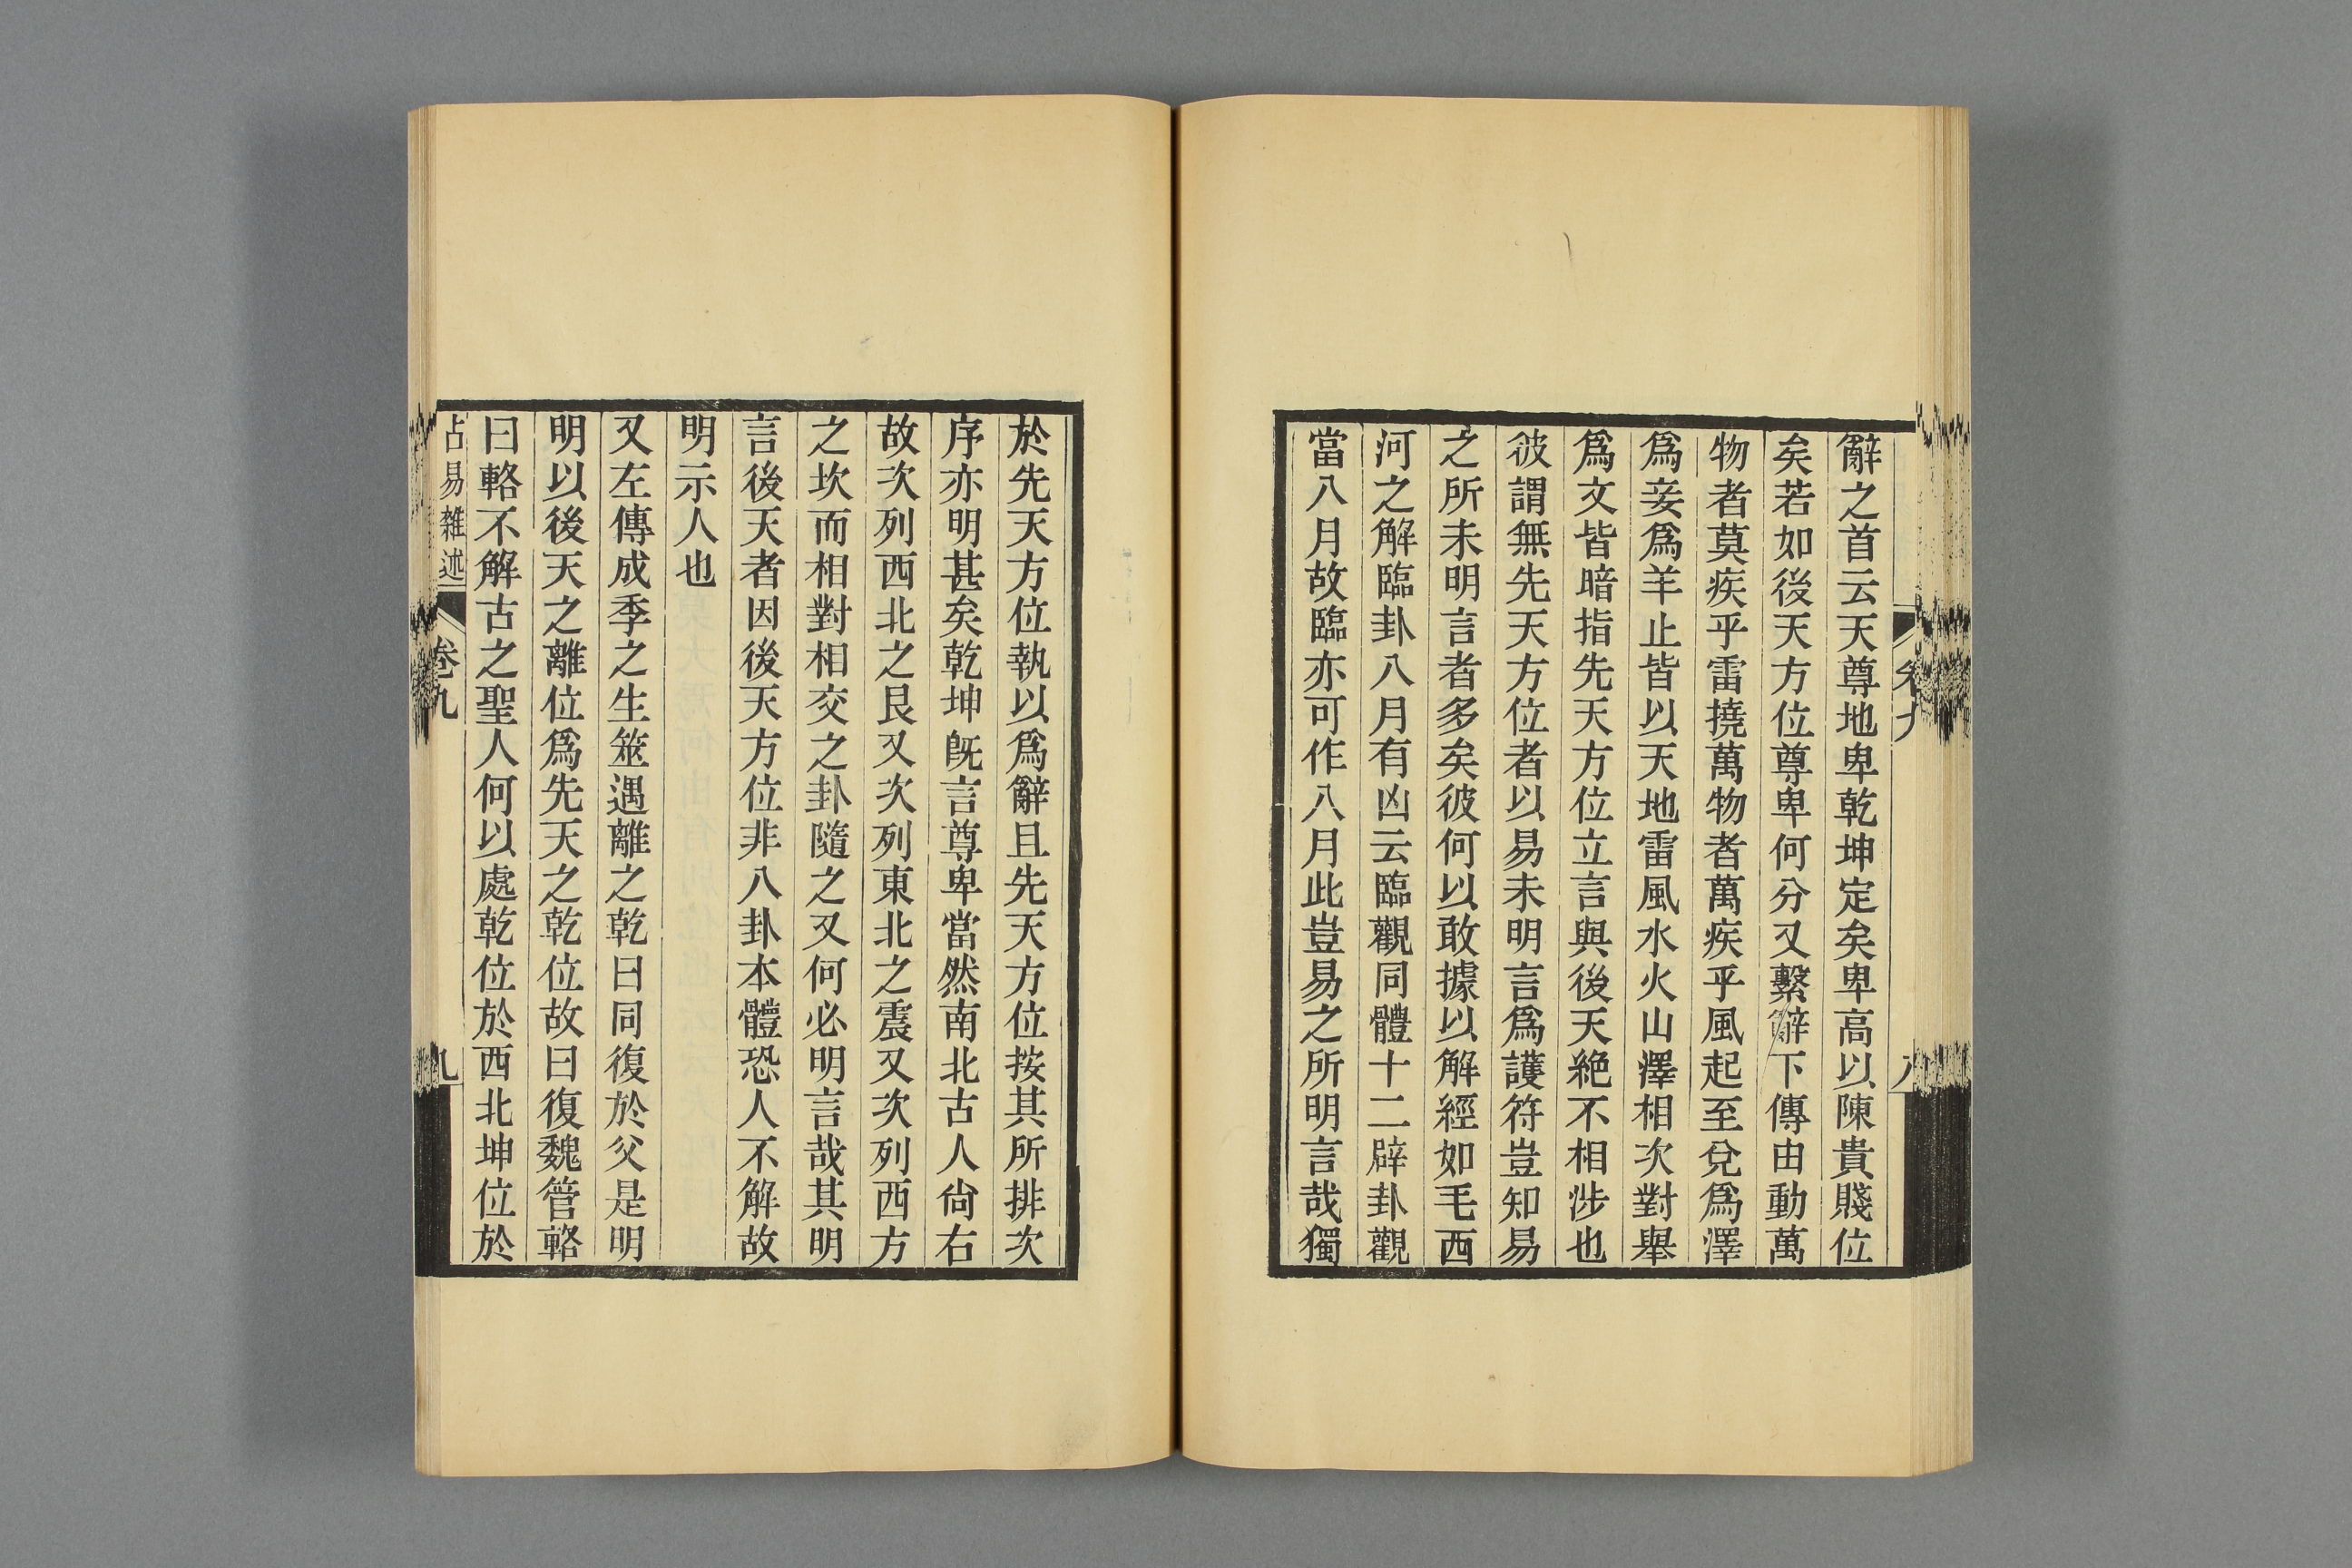 辭之首云天尊地卑乾坤定矣卑高以陳貴賤位
矣若如後天方位尊卑何分又繫辭下傳由動萬
物者莫疾乎雷撓萬物者萬疾乎風起至兌爲澤
爲妾爲羊止皆以天地雷風水火山澤相次對舉
爲文皆暗指先天方位立言與後天絕不相涉也
彼謂無先天方位者以易未明言爲護符豈知易
之所未明言者多矣彼何以敢據以解經如毛西
河之解臨卦八月有凶云臨觀同體十二辟卦觀
當八月故臨亦可作八月此豈易之所明言哉獨
於先天方位執以爲辭且先天方位按其所排次
序亦明甚矣乾坤旣言尊卑當然南北古人尙右
故次列西北之艮又次列東北之震又次列西方
之坎而相對相交之卦隨之又何必明言哉其明
言後天者因後天方位非八卦本體恐人不解故
明示人也
又左傳成季之生筮遇離之乾曰同復於父是明
明以後天之離位爲先天之乾位故曰復魏管輅
曰輅不解古之聖人何以處乾位於西北坤位於
占易雜述
卷九
九